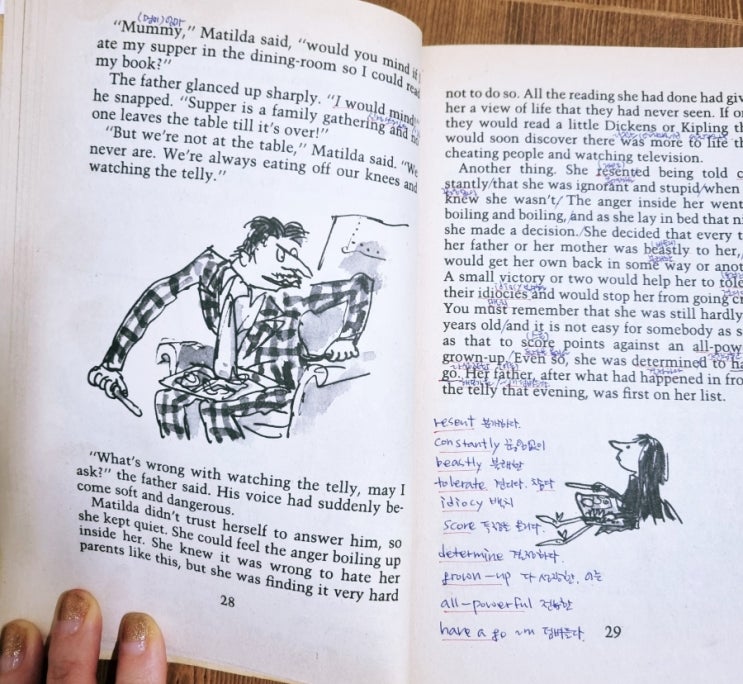 (영) 엄마
"Mummy," Matilda said, "would you mind if I
ate my supper in the dining-room so I could read
my book?"
The father glanced up sharply. "I would mind!"
he snapped. "Supper is a family gathering and no
one leaves the table till it's over!"
"But we're not at the table," Matilda said. "We
never are. We're always eating off our knees and
watching the telly."
"What's wrong with watching the telly, may I
ask?" the father said. His voice had suddenly be-
come soft and dangerous.
Matilda didn't trust herself to answer him, so
she kept quiet. She could feel the anger boiling up
inside her. She knew it was wrong to hate her
parents like this, but she was finding it very hard
28
not to do so. All the reading she had done had giv
her a view of life that they had never seen. If on
they would read a little Dickens or Kipling th
would soon discover there was more to life th
cheating people and watching television.
Another thing. She resented being told c
stantly/that she was ignorant and stupid/when
knew she wasn't/ The anger inside her went
boiling and boiling,/and as she lay in bed that ni
she made a decision./She decided that every t
her father or her mother was beastly to her,
would get her own back in some way or anot
A small victory or two would help her to tole
their idiocies and would stop her from going cr
You must remember that she was still hardly
years old/and it is not easy for somebody as s
as that to score points against an all-pow
grown-up./Even so, she was determined to ha
go. Her father, after what had happened in fro
the telly that evening, was first on her list.
resent 분개하다.
constantly 끊임없이
beastly 불쾌한
tolerate 견디다. 참다
idiocy 백치
score 득점을 올리다.
determine 결정하다.
grown-up 다 성장한, 어른
all-powerful 전능한
have a go ~m 덤벼든다.
29